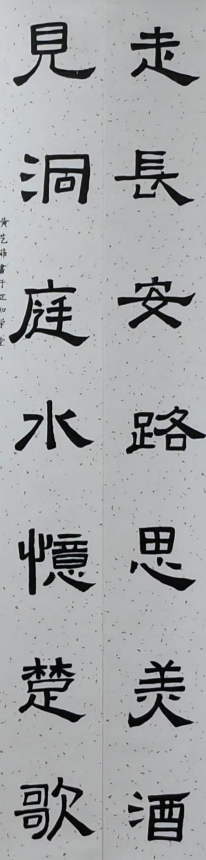 走長安路思美酒
見洞庭水憶楚歌
黄艺菲書于正知学堂